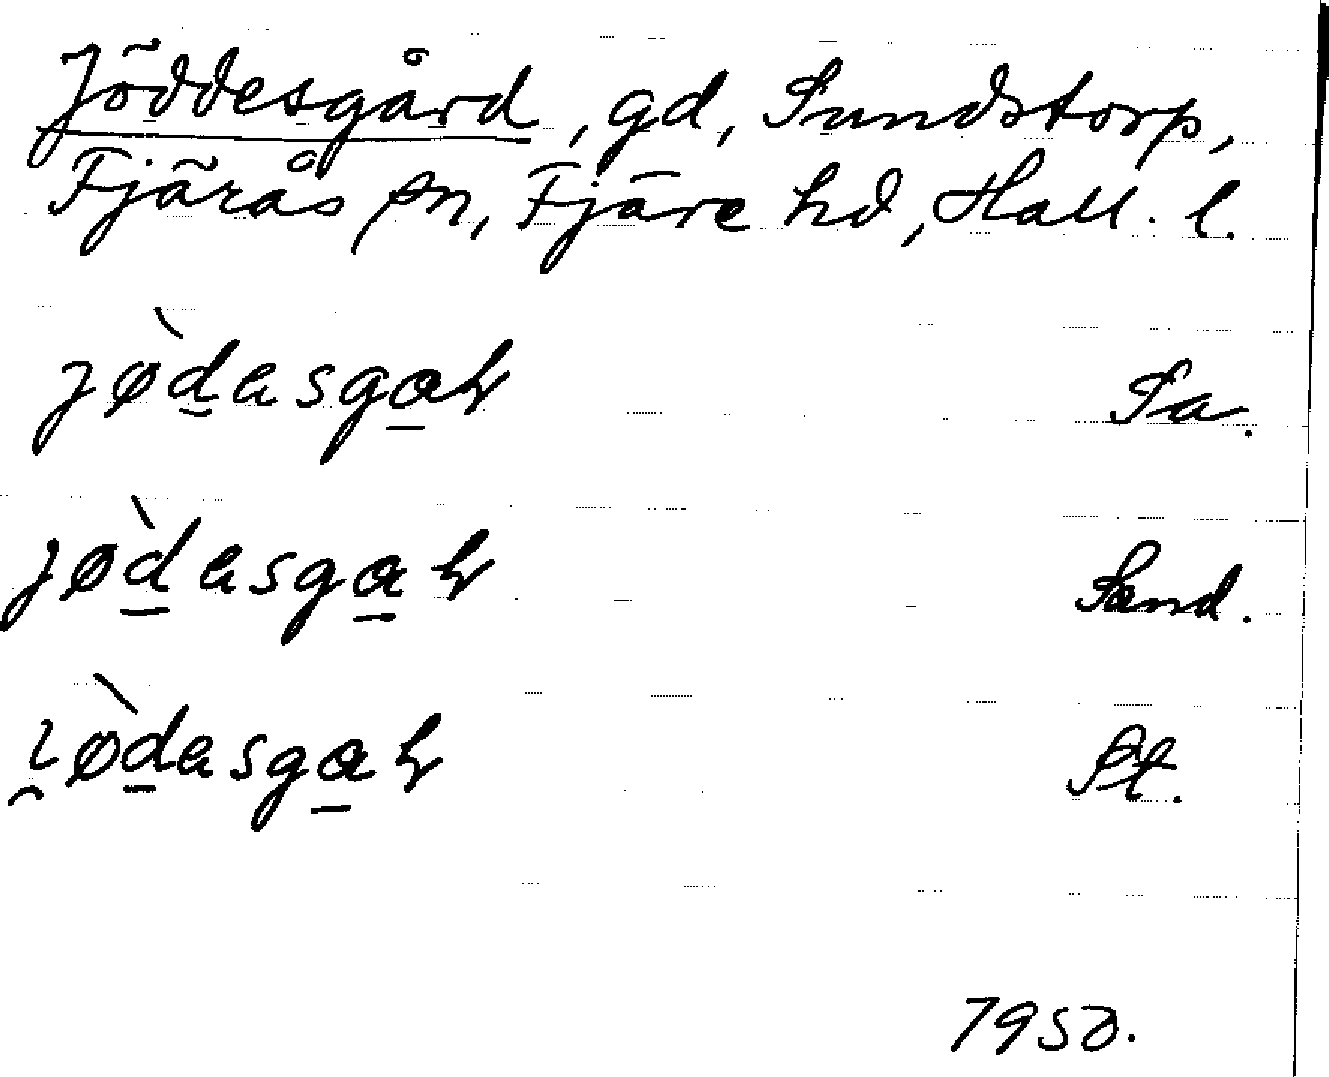 Jöddesgård, gd, Sundstorp,
Fjärås sn, Fjäre hd, Hall. l.
jø̀dasgaɽ Sa.
jø̀dasgaɽ Sand.
i̯ø̀dasgaɽ St.
1950.